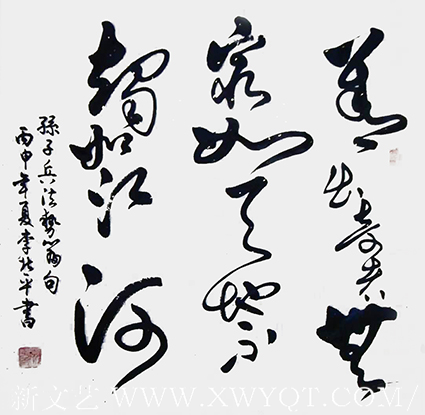 善出奇者無
窮如天地不
竭如江河
孫子兵法勢篇句
丙申年夏李平書
新文艺 WWW.XWYQT.COM/